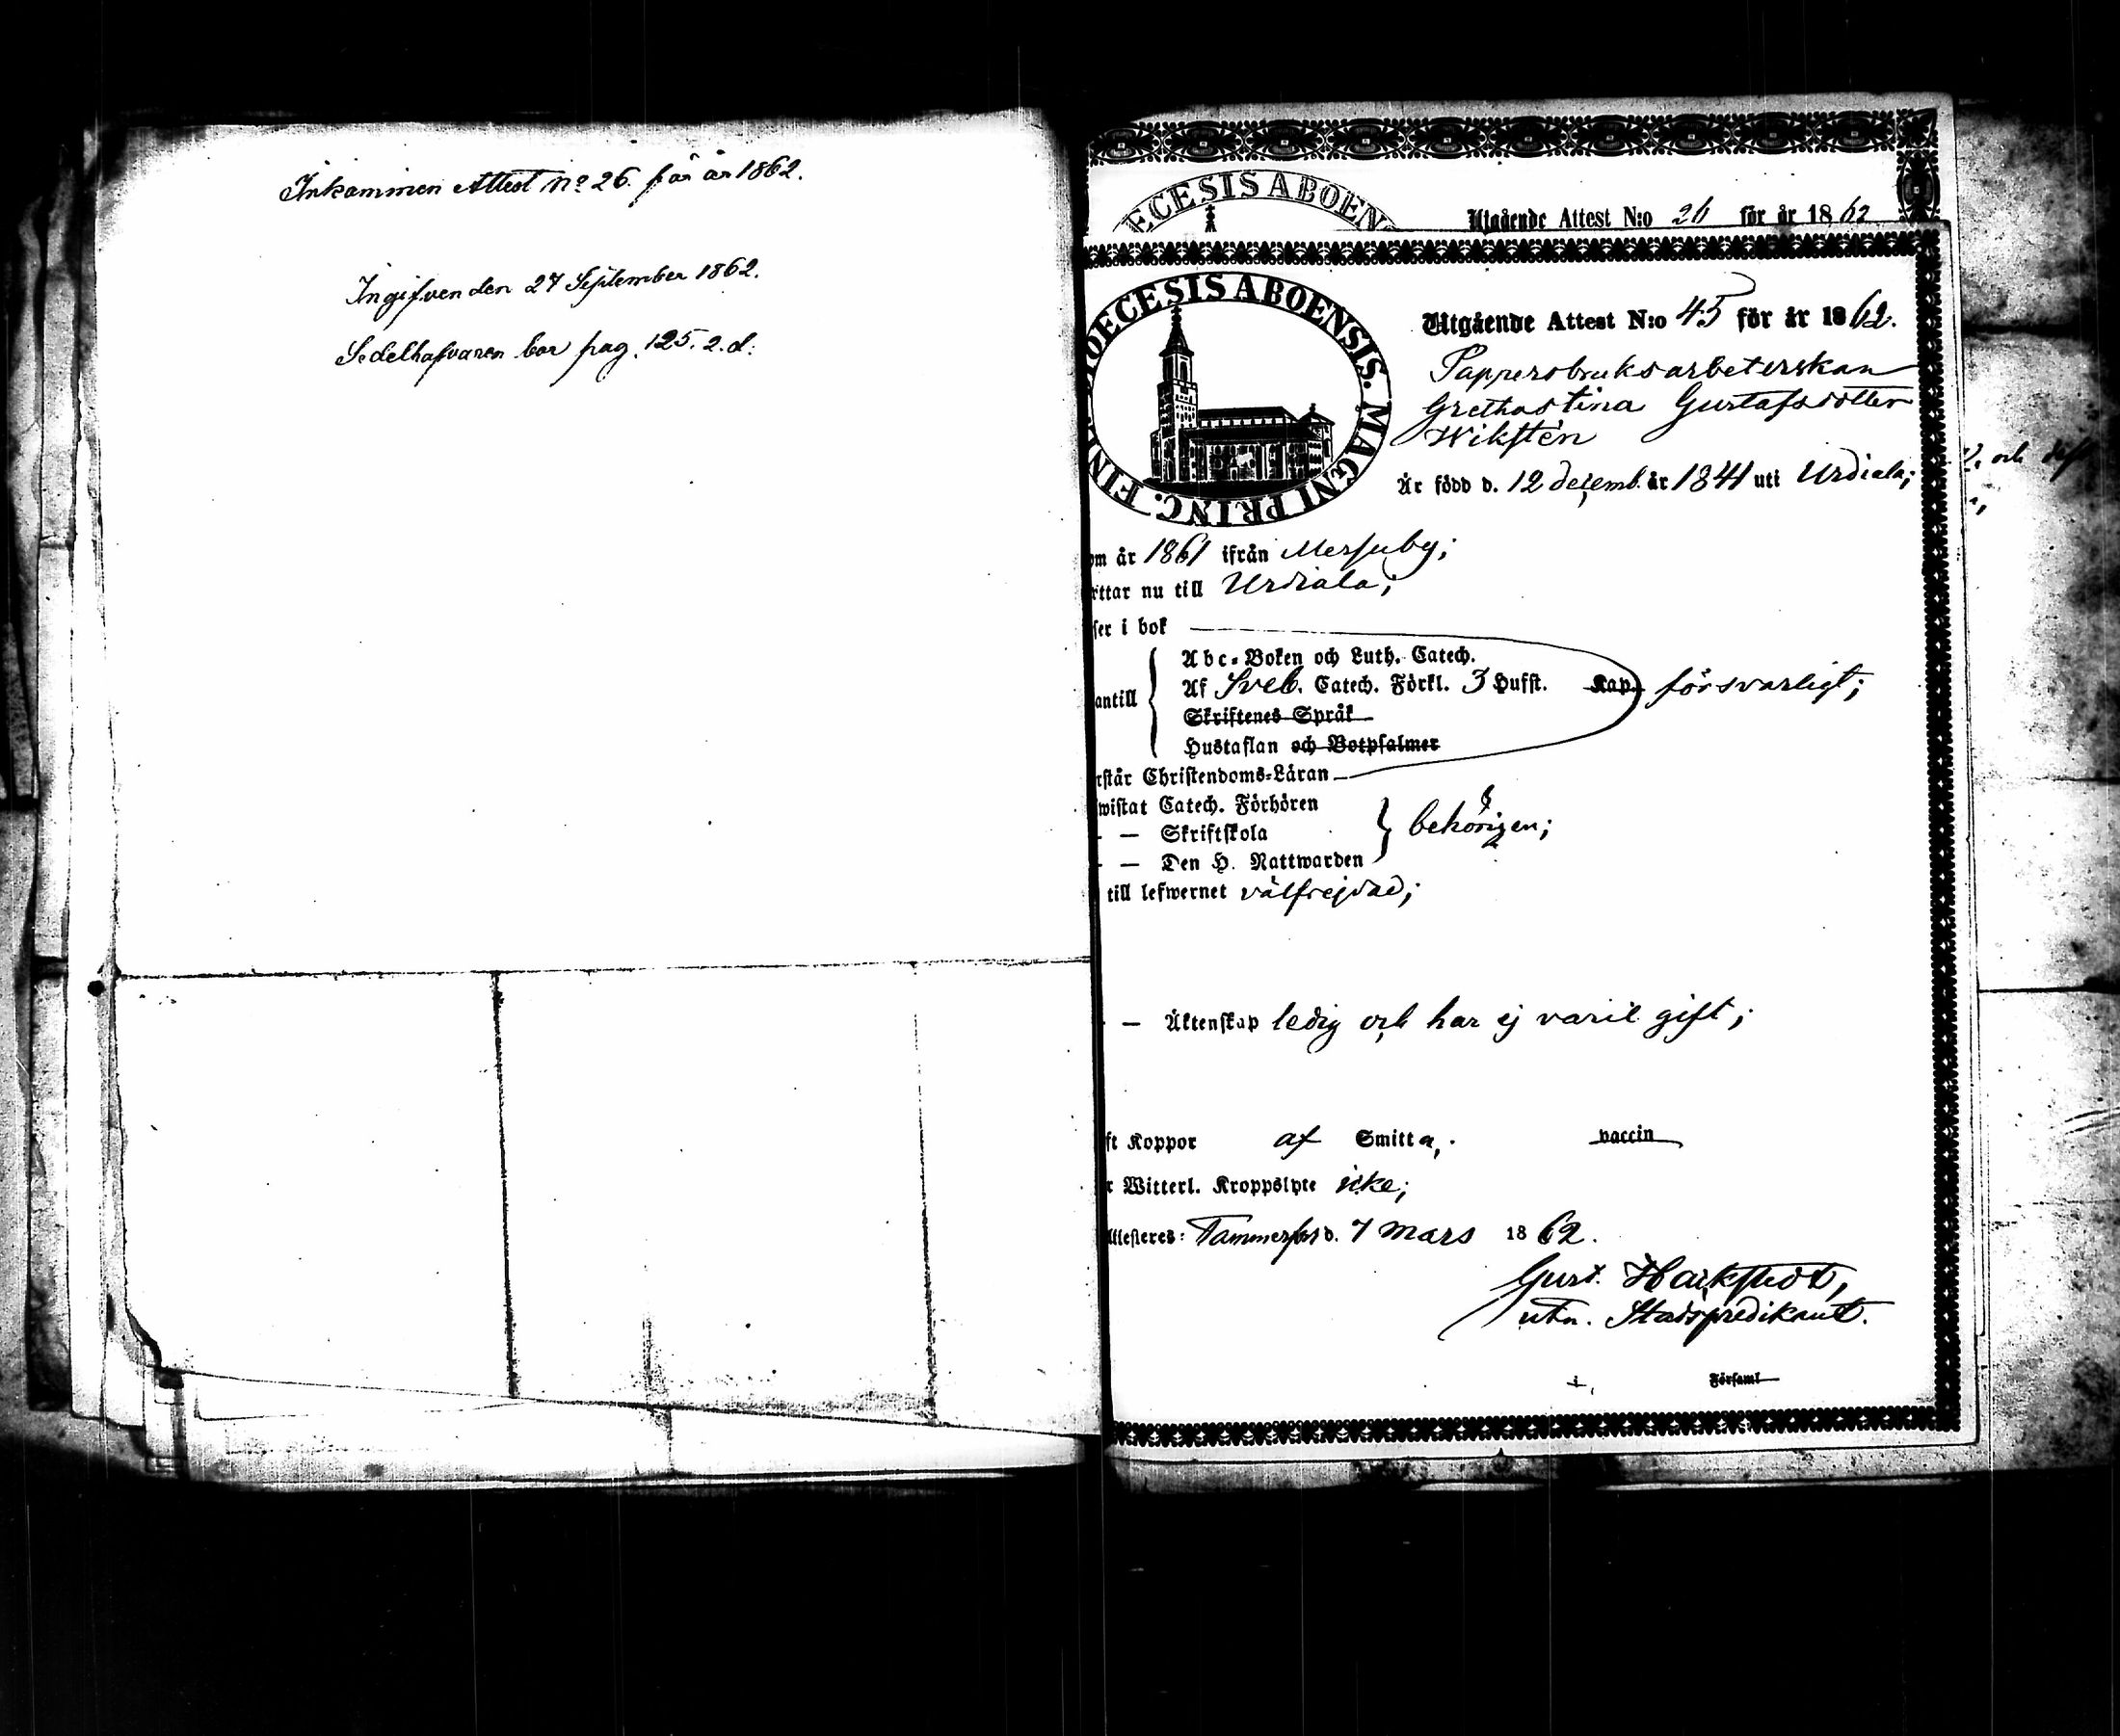 Inkommen Attest No 26. för år 1862.
Ingifven den 27 September 1862.
Sedelhafvaren bor pag. 125. 2. d:
ECESIS ABOEN
Utgående Attest N:o 26 för år 1862
DIOECESIS ABOENSIS. MAGNI PRINC. FIN
Utgående Attest N:o 45 för år 1862.
Pappersbruksarbeterskan
Grethastina Gustafsdotter
Wikstén
Är född d. 12 decemb. år 1841 uti Urdiala;
om år 1861 ifrån Messuby;
yttar nu till Urdiala;
ser i bok
antill
Abc-Boken och Luth. Catech.
Af Sveb. Catech. Förkl. 3 Hufst. Kap. försvarligt;
Skriftenes Språk
Hustaflan och Botpsalmer
rstår Christendoms-Läran
wistat Catech. Förhören
— Skriftskola behörigen;
— — Den H. Nattwarden
till lefwernet välfrejdad;
— Äktenskap ledig och har ej varit gift;
ft Koppor af Smitta, vaccin
r Witterl. Kroppslyte icke;
ttesteres: Tammerfors d. 7 Mars 1862.
Gust. Hackstedt,
utn. Stadspredikant.
i Församl
och